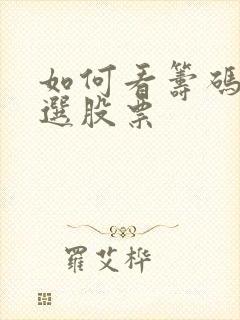 如何看籌碼
選股票
羅艾桦